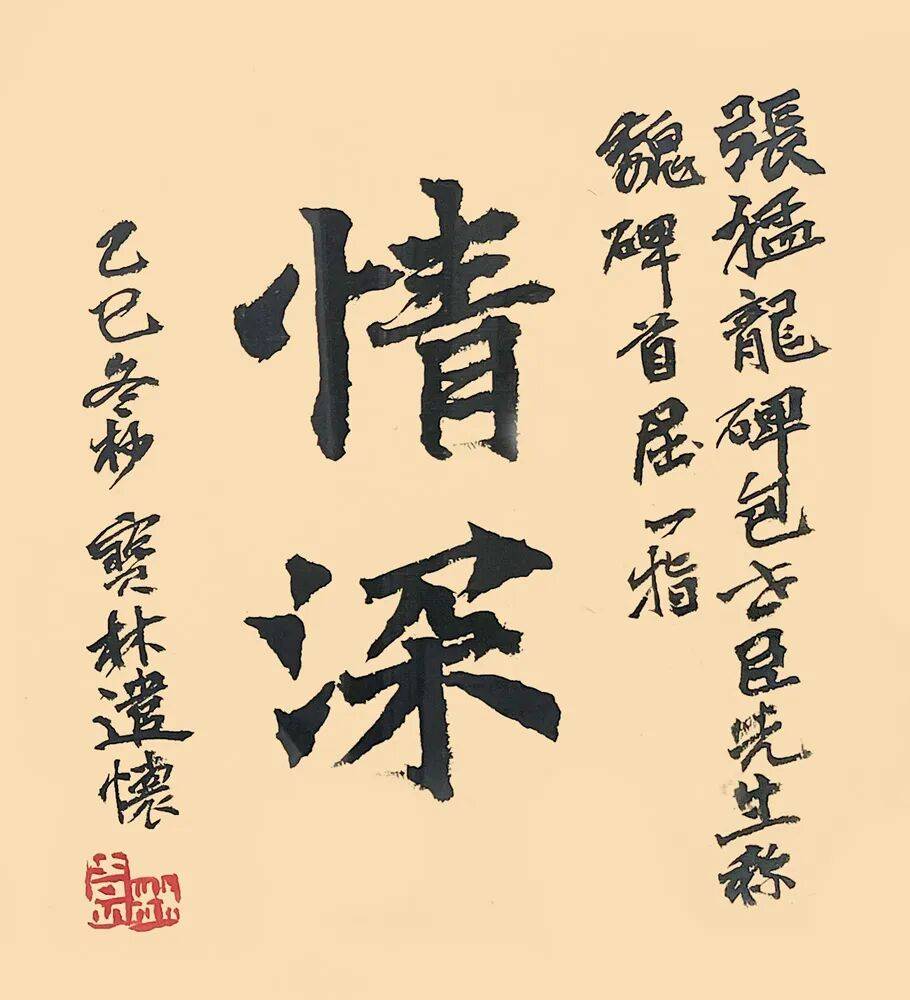 張猛龍碑包世臣先生称
魏碑首屈一指
情深
乙巳冬杪 寶林遣懷